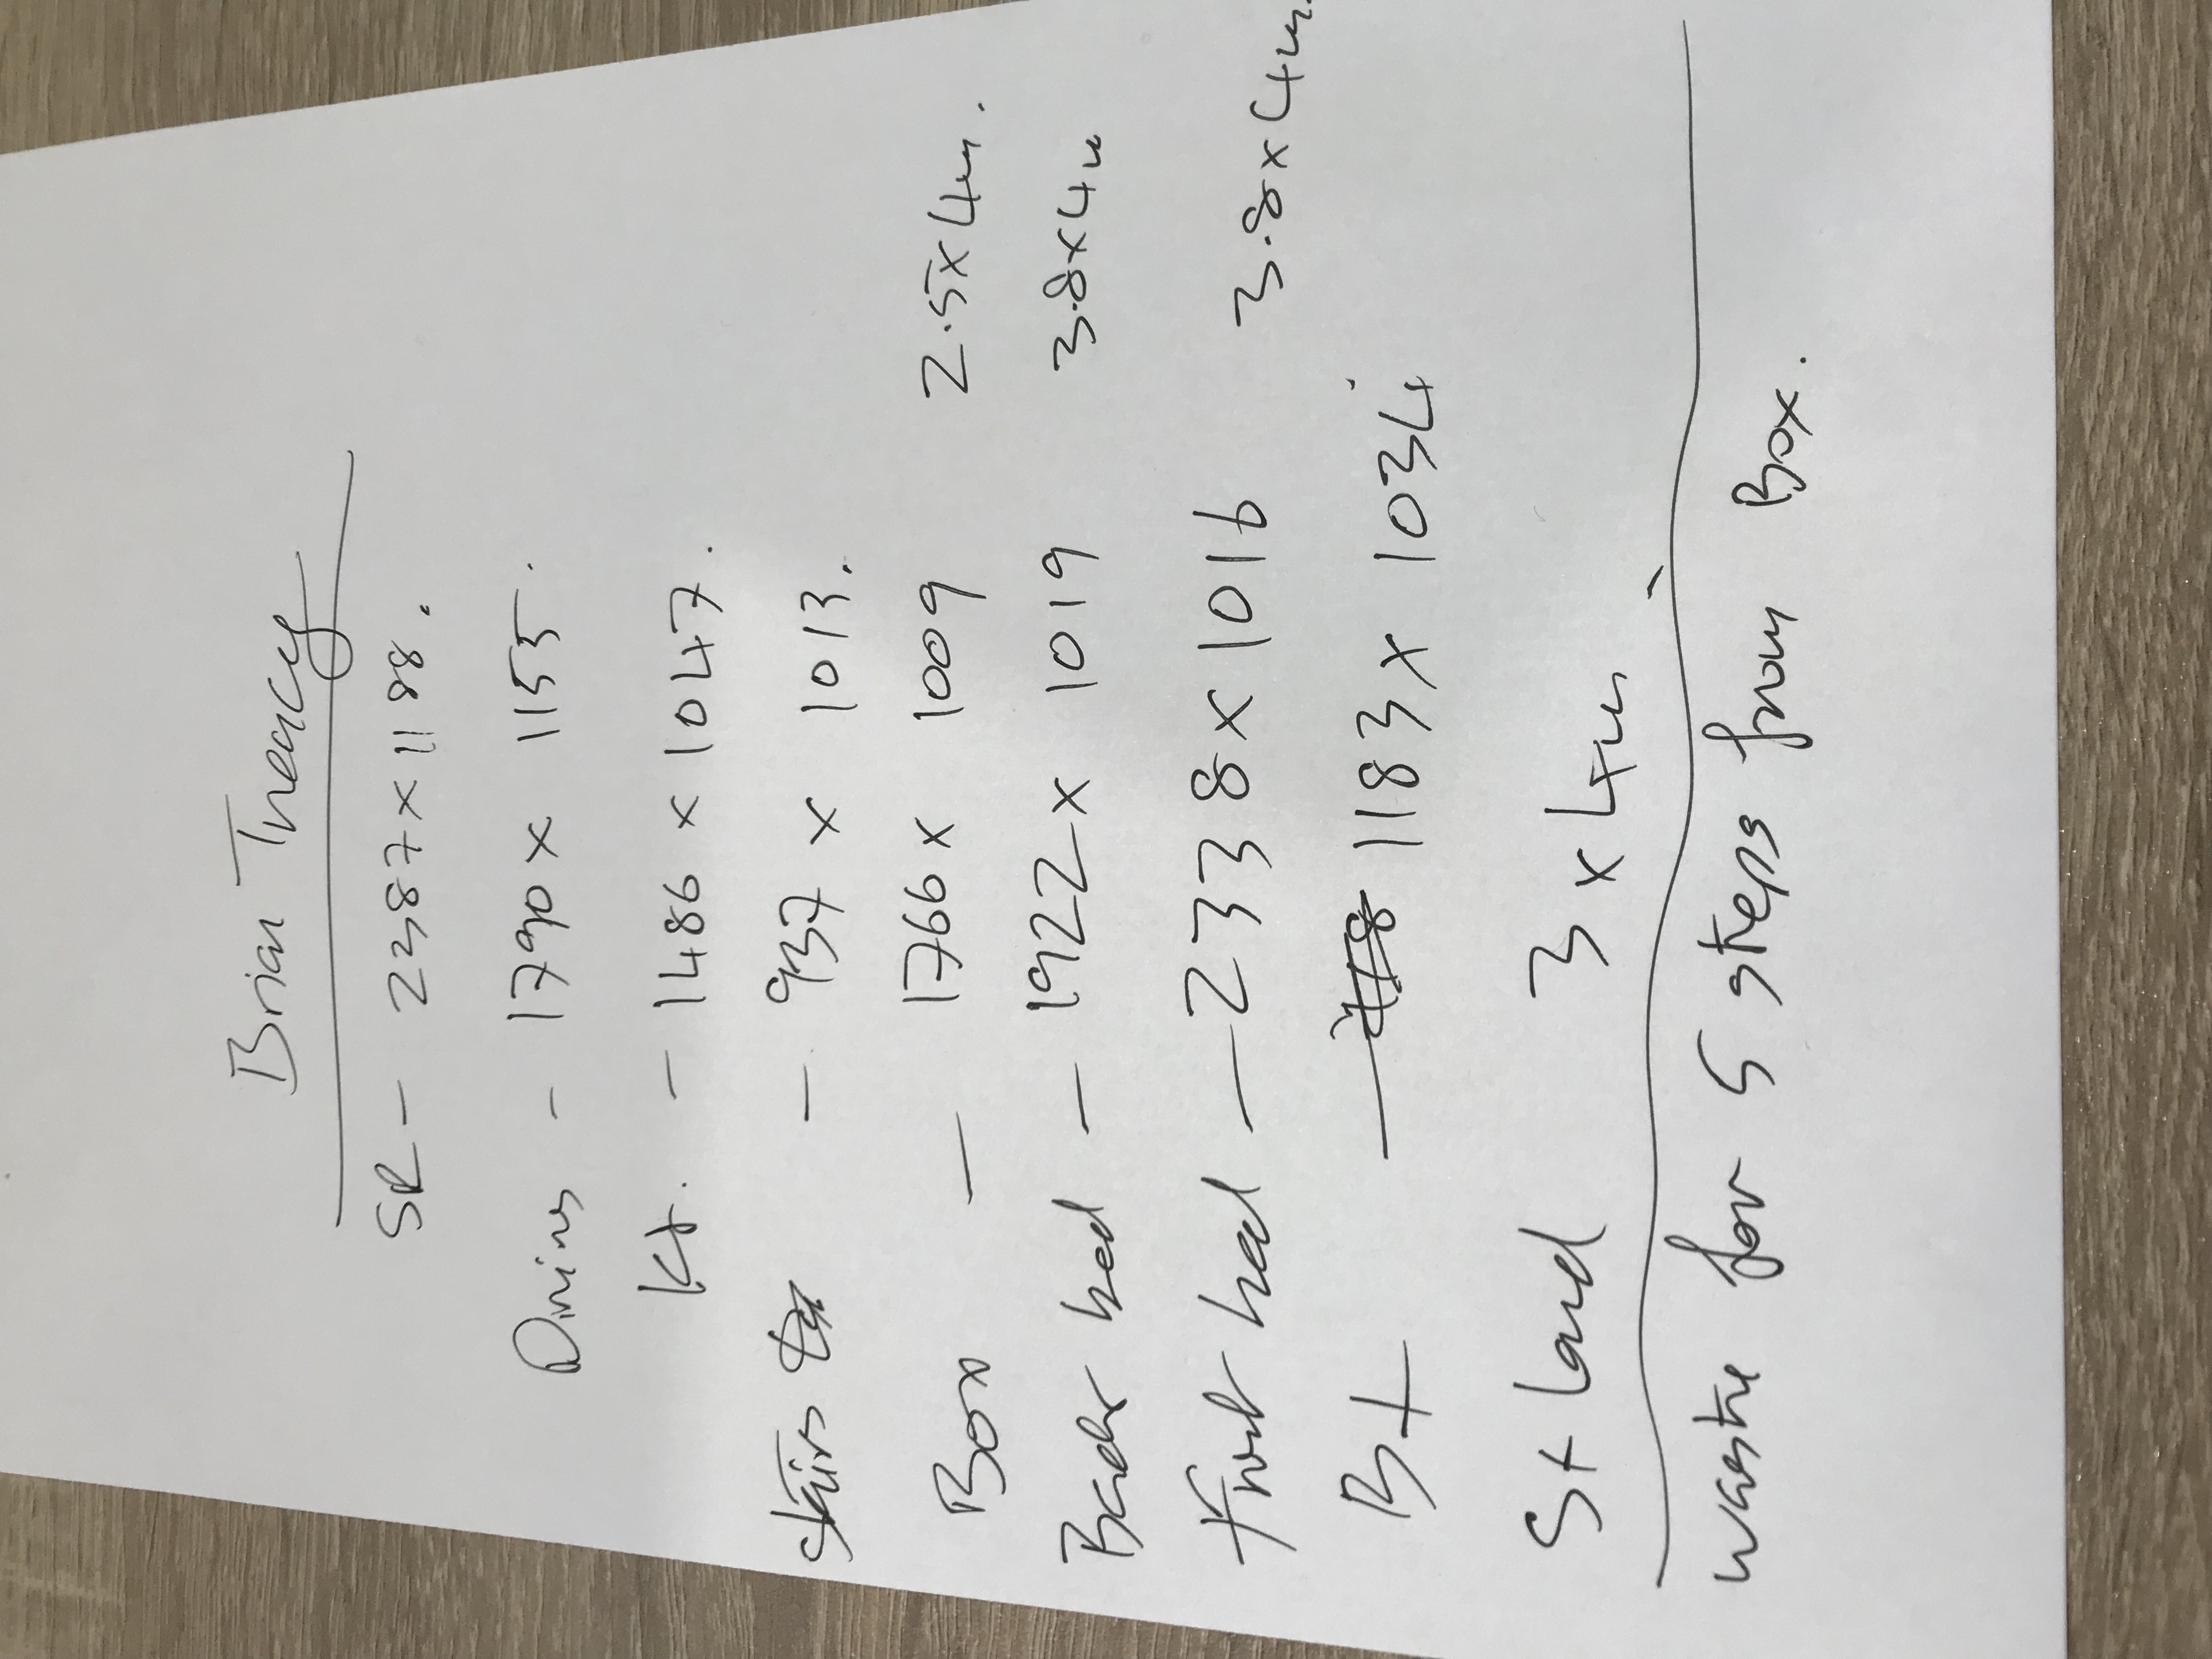 Brian Treacy
SR - 2387 x 1188.
Dining - 1790 x 1155.
Kt. - 1486 x 1047.
Stairs - 937 x 1013.
Box - 1766 x 1009 2.5 x 4m.
Back bed - 1922 x 1019 3.8 x 4m
Front bed - 2338 x 1016 3.8 x 4m.
Bt - 1183 x 1034
St Land 3 x 4m
waste for 5 steps from Box.